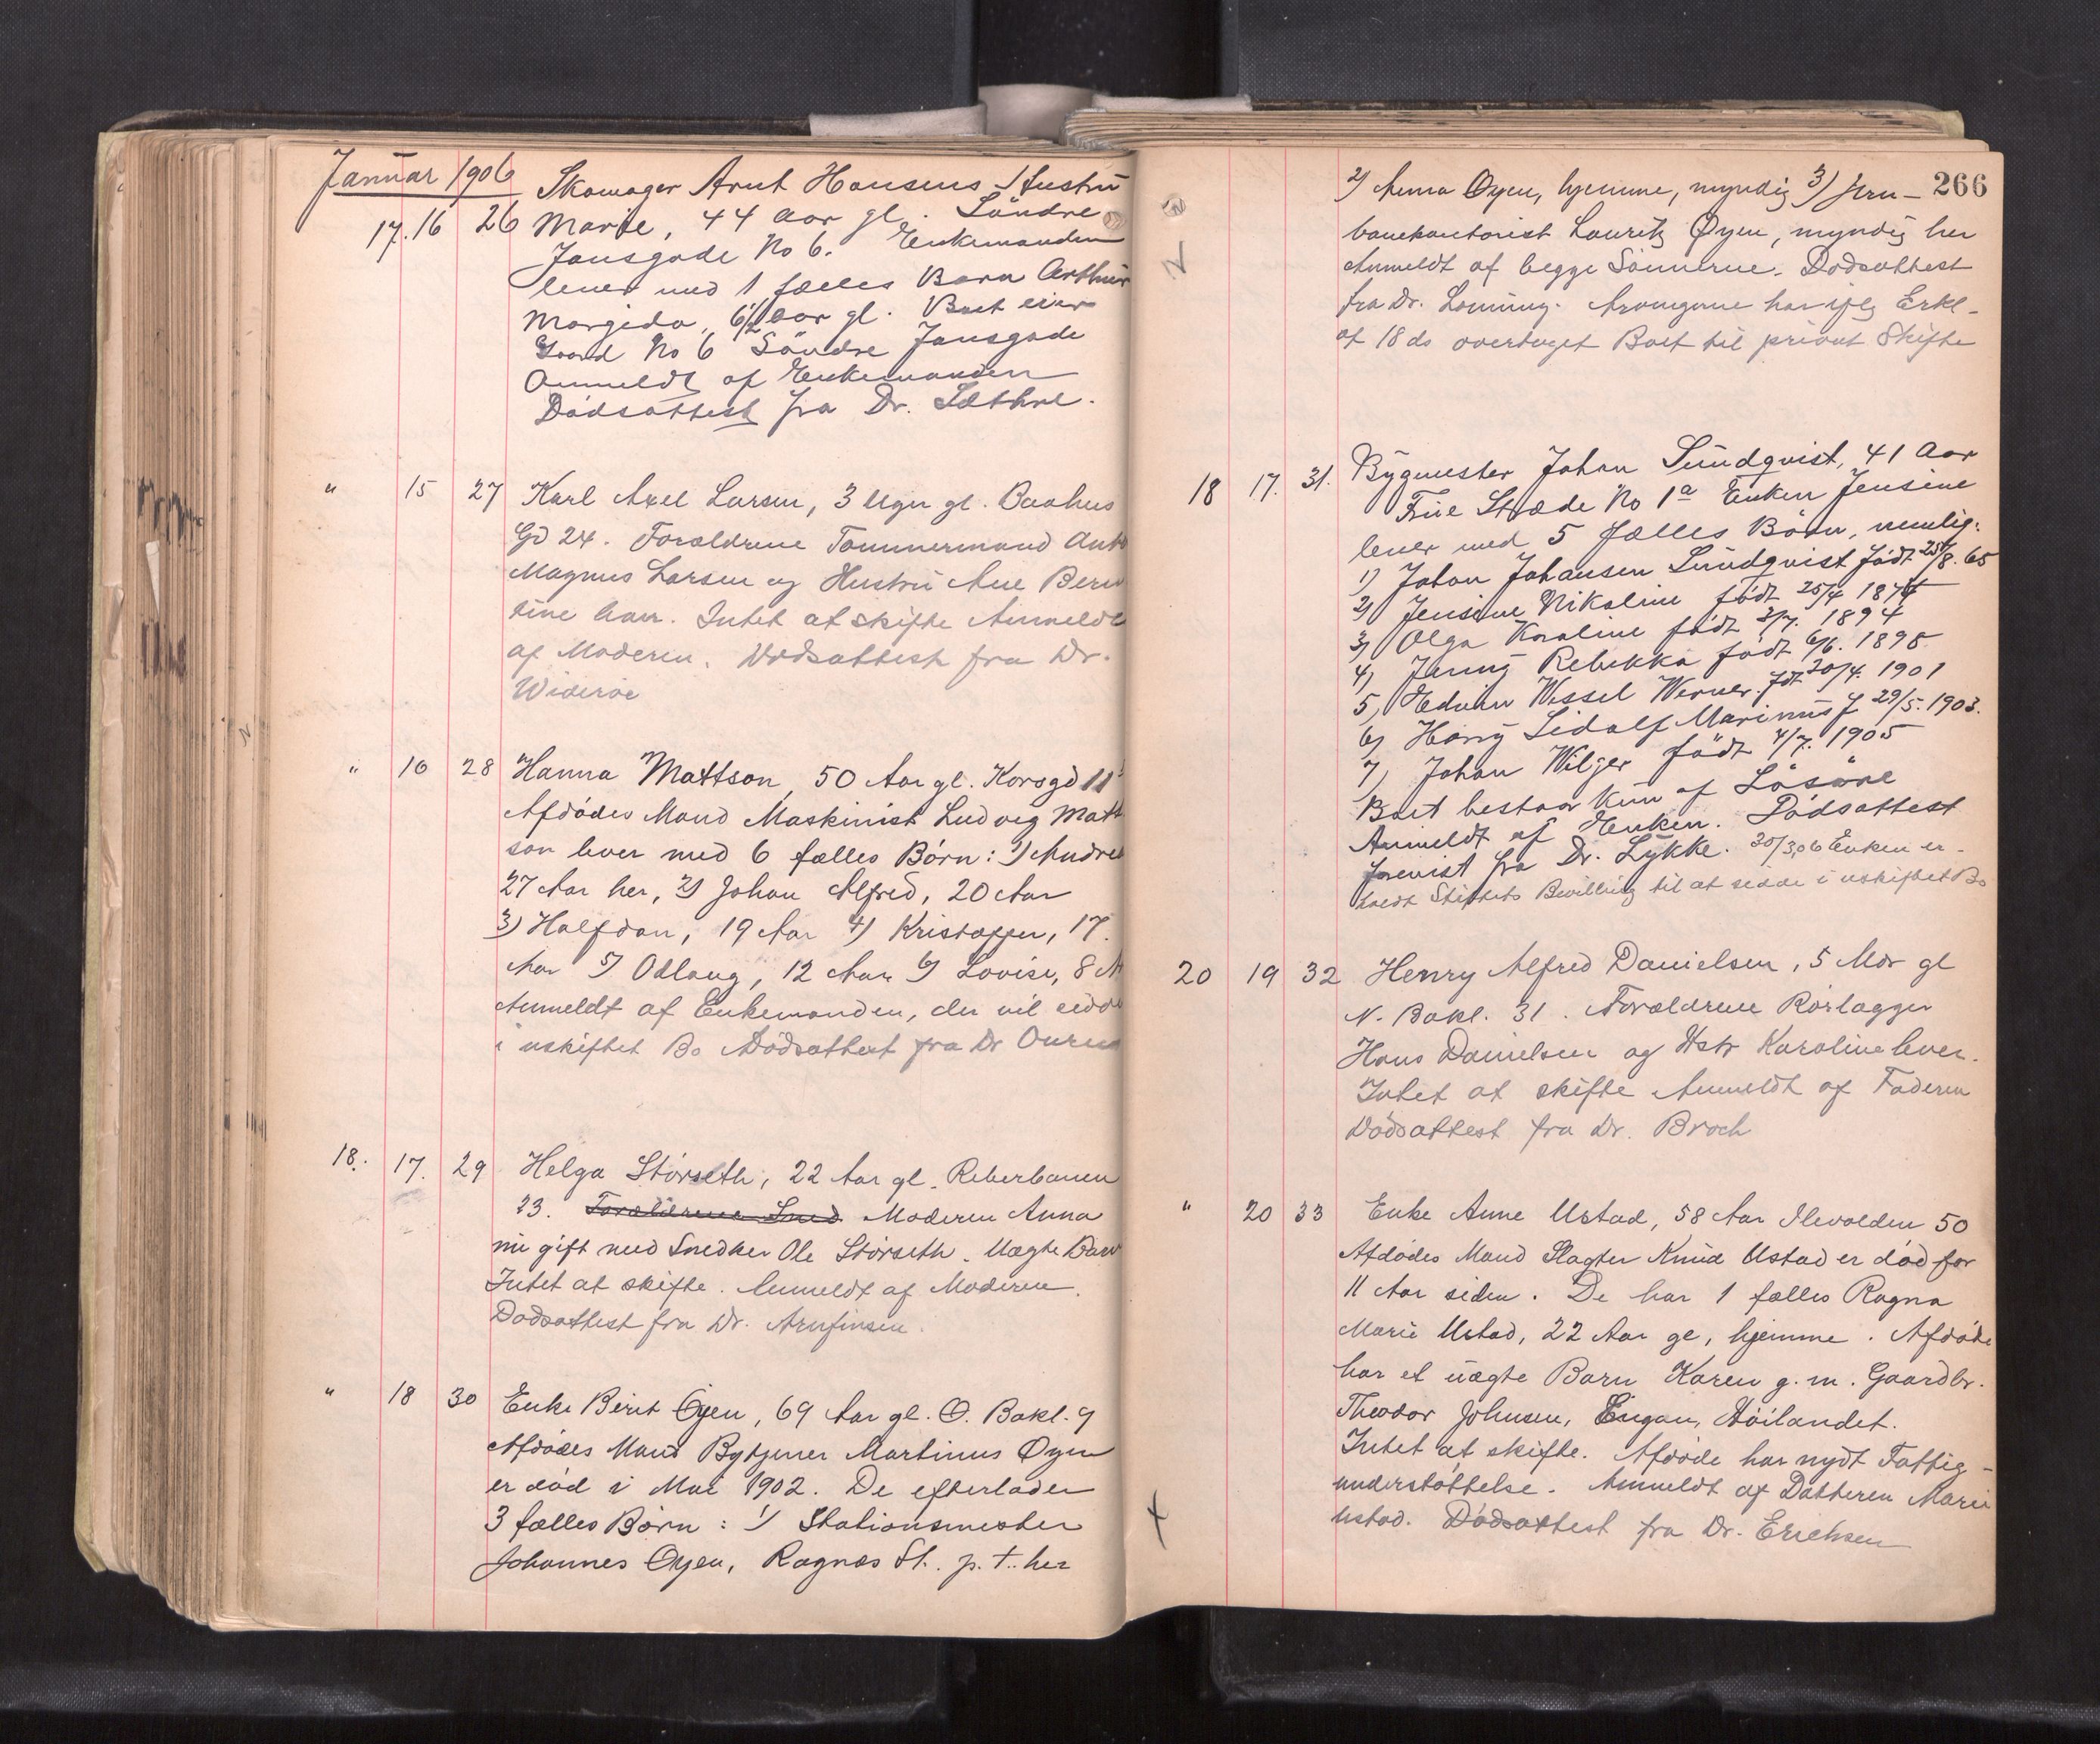 Januar 1906
Skomager Arnt Hansens Hustru
17. 16 26 Marie, 44 Aar gl. Söndre
Jonsgade No 6. Enkemanden
lever med 1 fælles Barn Arthur
Margido, 6½ Aar gl. Boet eier
Gaard No 6 Söndre Jonsgade
Anmeldt af Enkemanden
Dödsattest fra Dr. Sæthre.
" 15 27 Karl Axel Larsen, 3 Uger gl. Baahus
Gd 24. Forældrene Tömmermand Ant
Magnus Larsen og Hustru Ane Bern
tine lever. Intet at skifte Anmeldt
af Moderen. Dödsattest fra Dr.
Wideröe
" 16 28 Hanna Mattson, 50 Aar gl. Korsgd 11
Afdödes Mand Maskinist Ludvig Matt
son lever med 6 fælles Börn: 1) Andrea
27 Aar her, 2) Johan Alfred, 20 Aar
3) Halfdan, 19 Aar 4) Kristoffer, 17.
Aar 5) Odlaug, 12 Aar 6) Lovise, 8 A
Anmeldt af Enkemanden, der vil sidde
i uskiftet Bo Dödsattest fra Dr
18. 17. 29 Helga Störseth, 22 Aar gl. Reberbanen
23. Forældrene Smed Moderen Anna
nu gift med Snedker Ole Störseth. Uægte Barn
Intet at skifte. Anmeldt af Moderen.
Dödsattest fra Dr. Arnfinsen.
" 18 30 Enke Berit Öyen, 69 Aar gl. O. Bakl. 9
Afdödes Mand Bytjener Martinus Öyen
er död i Mai 1902. De efterlader
3 fælles Börn: 1) Stationsmester
Johannes Öyen, Ragnæs St. p. t. her
266
2) Anna Öyen, hjemme, myndig 3) Jern-
banekontorist Lauritz Öyen, myndig her
Anmeldt af begge Sönnerne. Dödsattest
fra Dr. Arvingerne har iflg Erkl.
af 18 ds overtaget Boet til privat Skifte
18 17. 31. Bygmester Johan Sundqvist, 41 Aar
Frue Stræde No 1a Enken Jensine
lever med 5 fælles Börn, nemlig:
1) Johan Johansen Sundqvist född 25/8. 65
2) Jensine Nikoline född 25/4 1874
3) Olga Karoline född 2/7. 1894
4) Jenny Rebekka född 6/6. 1898
5) Edvin Wessel Werner. fdt 20/4. 1901
6) Harry Sidolf Marinus f 29/5. 1903.
7) Johan Wilger född 4/7. 1905
Boet bestaar kun af Lösöre
Anmeldt af Enken. Dödsattest
forevist fra Dr. Lykke. 30/3.06 Enken er-
holdt Skiftets Bevilling til at sidde i uskiftet Bo
20 19 32 Henry Alfred Danielsen, 5 Mdr gl
N. Bakl. 31. Forældrene Rörlægger
Hans Danielsen og Hstr Karoline lever.
Intet at skifte Anmeldt af Faderen
Dödsattest fra Dr. Broch
" 20 33 Enke Anne Ustad, 58 Aar Ilevolden 50
Afdödes Mand Slagter Knud Ustad er död for
11 Aar siden. De har 1 fælles Ragna
Marie Ustad, 22 Aar gl, hjemme. Afdöde
har et uægte Barn Karen g. m. Gaardbr.
Theodor Johnsen, Engan, Höilandet.
Intet at skifte. Afdöde har nydt Fattig-
understöttelse. Anmeldt af Datteren Marie
Ustad. Dödsattest fra Dr. Erichsen